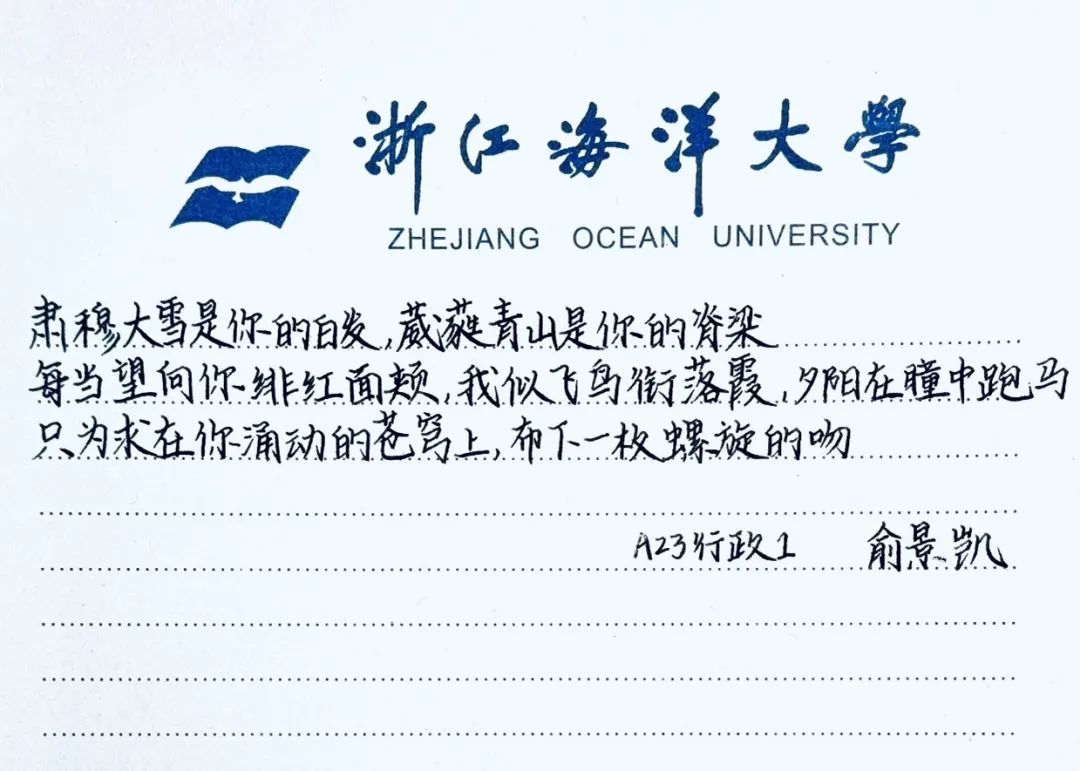 浙江海洋大學
ZHEJIANG OCEAN UNIVERSITY
肃穆大雪是你的白发,葳蕤青山是你的脊梁
每当望向你绯红面颊,我似飞鸟衔落霞,夕阳在瞳中跑马
只为求在你涌动的苍穹上,布下一枚螺旋的吻
A23行政1 俞景凯